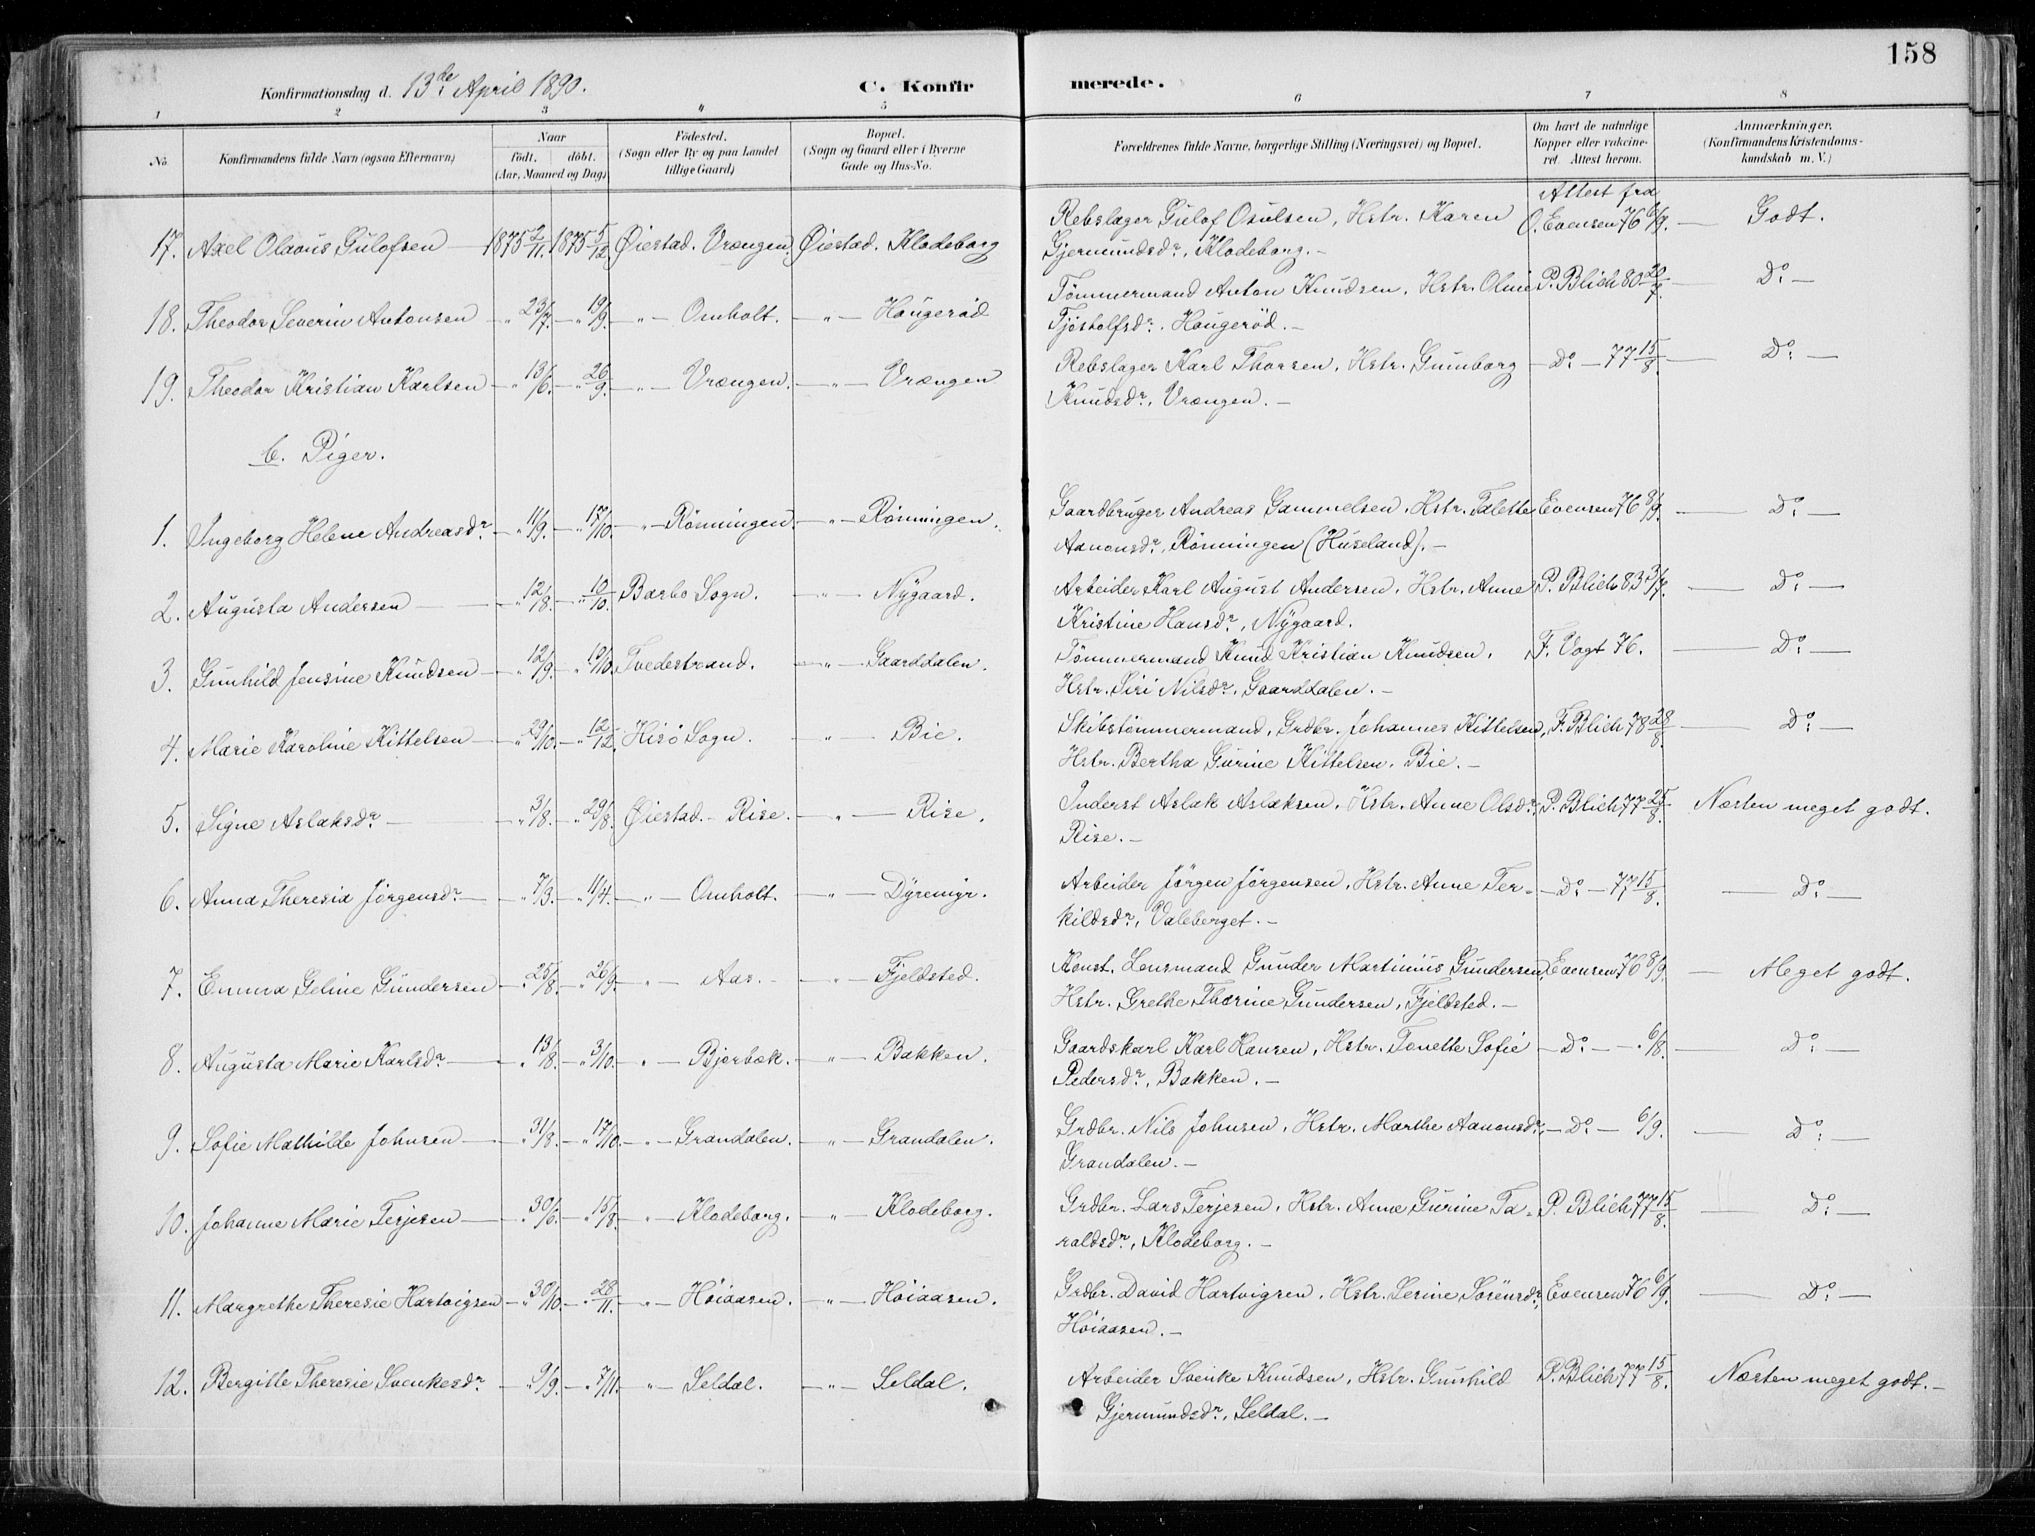 158
Konfirmationsdag d. 13de April 1890.
C. Konfirmerede.
1 2 3 4 5 6 7 8
No
Konfirmandens fulde Navn (ogsaa Efternavn)
Naar
födt. döbt.
(Aar, Maaned og Dag)
Födested.
(Sogn eller By og paa Landet
tillige Gaard)
Bopæl.
(Sogn og Gaard eller i Byerne
Gade og Hus-No.
Forældrenes fulde Navne, borgerlige Stilling (Næringsvei) og Bopæl.
Om havt de naturlige
Kopper eller vakcine-
ret. Attest herom.
Anmærkninger.
(Konfirmandens Kristendoms-
kundskab m. V.)
17. Axel Olavus Gulofsen 1875 2/11. 1875 5/12. Øiestad. Vrængen. Øiestad. Klodeborg Rebslager Gulof Osulsen, Hstr. Karen Attest fra O. Evensen 76 6/9. — Godt.
Gjermundsdr, Klodeborg. —
18. Theodor Severin Antonsen — " 23/7. — " 19/9. — " — Omholt. — " — Hougeröd Tömmermand Anton Knudsen. Hstr. Oline P. Blich 80 20/7. — Do —
Tjöstolfsdr. Hougeröd. —
19. Theodor Kristian Karlsen — " 13/6. — " 26/9. — " — Vrængen. — " — Vrængen Rebslager Karl Thorsen, Hstr. Gunborg — Do — 77 15/8. — Do —
Knudsdr, Vrængen. —
b. Piger.
1. Ingeborg Helene Andreasdr — " 11/9. — " 17/10. — " — Rönningen. — " — Rönningen. Gaardbruger Andreas Gammelsen. Hstr. Talette Evensen 76 8/9. — Do —
Aanonsdr, Rönningen (Huseland). —
2. Augusta Andersen — " 12/8. — " 10/10. Barbo Sogn. — " — Nygaard. Arbeider Karl August Andersen. Hstr. Anne P. Blich 83 3/7. — Do —
Kristine Hansdr, Nygaard.
3. Gunhild Jensine Knudsen — " 12/9. — " 10/10. Tvedestrand. — " — Gaarddalen. Tömmermand Knud Kristian Knudsen. F. Vogt 76. — Do —
Hstr. Siri Nilsdr. Gaarddalen. —
4. Marie Karoline Kittelsen — " 29/10. — " 12/12. Hisö Sogn. — " — Bie. Skibstömmermand, Grdbr. Johannes Kittelsen, F. Blich 78 28/8. — Do —
Hstr. Bertha Gurine Kittelsen. Bie. —
5. Signe Aslaksdr — " 3/8. — " 29/8. Øiestad. — Rise. — " — Rise. Inderst Aslak Aslaksen. Hstr. Anne Olsdr, P. Blich 77 25/8. Næsten meget godt.
Rise. —
6. Anna Theresia Jörgensdr — " 7/3. — " 11/4. — " — Omholt. — " — Dyremyr. Arbeider Jörgen Jörgensen. Hstr. Anne Ter- — Do — 77 15/8. — Do —
kildsdr, Valeberget. —
7. Emma Geline Gundersen — " 25/8. — " 26/9. — " — Aas. — — " — Fjeldsted. Konst. Lensmand Gunder Martinius Gundersen, Evensen 76 8/9. — Meget godt.
Hstr. Grethe Thorine Gundersen, Fjeldsted. —
8. Augusta Marie Karlsdr — " 13/8. — " 3/10. — " — Bjorbæk. — " — Bakken. Gaardskarl Karl Hansen, Hstr. Tonette Sofie — Do — — " 6/8. — Do —
Pedersdr, Bakken. —
9. Sofie Mathilde Johnsen — " 31/8. — " 17/10. — " — Grandalen. — " — Grandalen. Grdbr. Nils Johnsen, Hstr. Marthe Aanonsdr, — Do — 6/9. — Do —
Grandalen. —
10. Johanne Marie Terjesen — " 30/6. — " 15/8. — " — Klodeborg. — " — Klodeborg. Grdbr. Lars Terjesen, Hstr. Anne Gurine Ta- P. Blich 77 15/8. — Do —
raldsdr, Klodeborg. —
11. Margrethe Theresie Hartvigsen — " 30/10. — " 28/11. — " — Höiaasen. — " — Höiaasen. Grdbr. David Hartvigsen, Hstr. Serine Sörensdr, Evensen 76 6/9. — Do —
Höiaasen. —
12. Bergitte Theresie Svenkesdr — " 9/9. — " 7/11. — " — Seldal. — " — Seldal. Arbeider Svenke Knudsen, Hstr. Gunhild P. Blich 77 15/8. Næsten meget godt. —
Gjermundsdr, Seldal. —